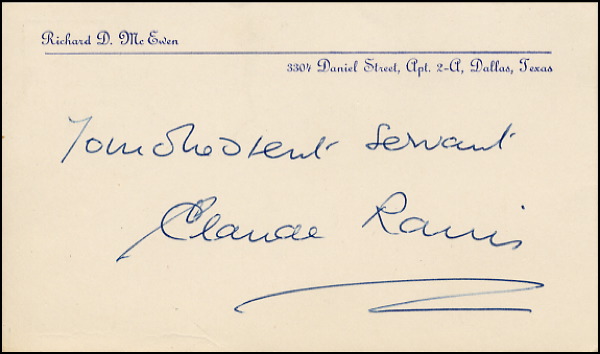 Richard D. Mc Ewen
3304 Daniel Street, Apt. 2-A, Dallas, Texas
Your Obedient Servant
Claude Rains